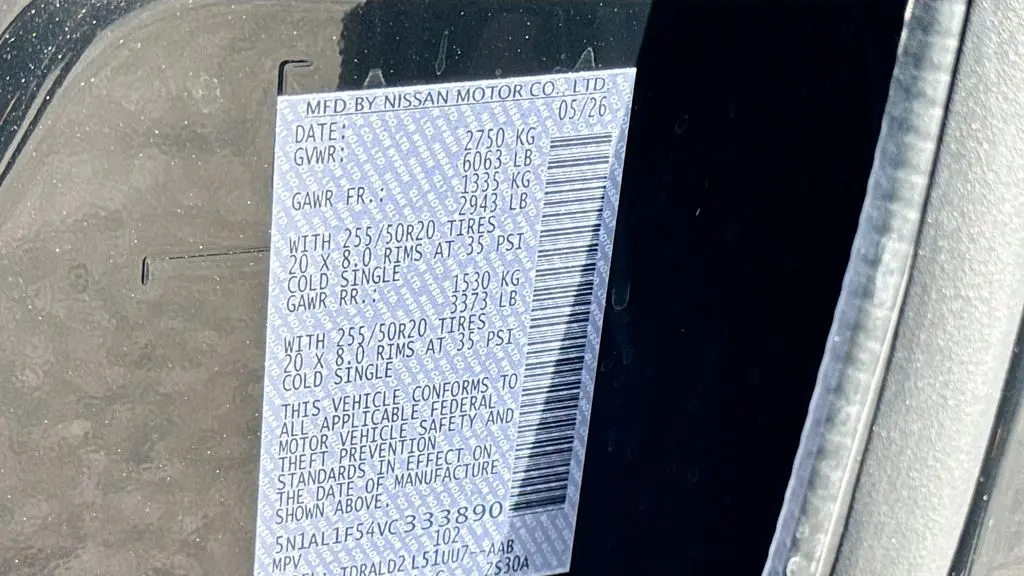 MFD BY NISSAN MOTOR CO., LTD
DATE: 05/26
GVWR: 2750 KG
6063 LB
GAWR FR.: 1335 KG
2943 LB
WITH 255/50R20 TIRES
20 X 8.0 RIMS AT 35 PSI
COLD SINGLE
GAWR RR.: 1530 KG
3373 LB
WITH 255/50R20 TIRES
20 X 8.0 RIMS AT 35 PSI
COLD SINGLE
THIS VEHICLE CONFORMS TO
ALL APPLICABLE FEDERAL
MOTOR VEHICLE SAFETY AND
THEFT PREVENTION
STANDARDS IN EFFECT ON
THE DATE OF MANUFACTURE
SHOWN ABOVE.
5N1AL1F54VC333890
MPV 102
TDRALD2 L51UU7--AAB
ZS30A